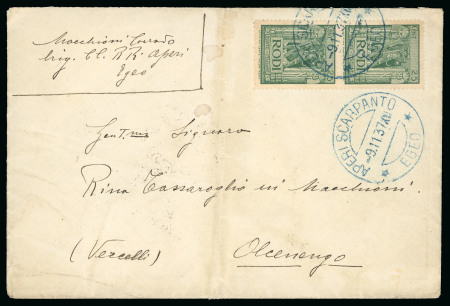 Macchioni Corrado
brig. CC. RR. Aperi
Egeo
RODI
RODI
APERI SCARPANTO
-9.11.37.XVI
EGEO
Gent.ma Signora
Rina Tassaroglio in Macchioni.
(Vercelli) Olcenengo